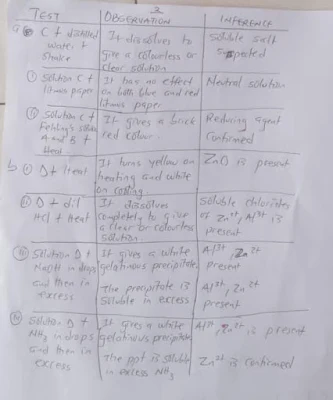 2
TEST
OBSERVATION
INFERENCE
a C + distilled
water +
Shake
It dissolves to
give a colourless or
clear solution
Soluble salt
Suspected
(i) Solution C +
litmus paper
It has no effect
on both blue and red
litmus paper
Neutral solution
(ii) Solution C +
Fehling's soln
A and B +
Heat
It gives a brick
red colour.
Reducing agent
Confirmed
b (i) D + Heat
It turns yellow on
heating and white
on cooling.
ZnO is present
(ii) D + dil
HCl + Heat
It dissolves
completely to give
a clear or colourless
solution.
Soluble chlorides
of Zn2+, Al3+ is
present
(iii) Solution D +
NaOH in drops
and then in
excess
It gives a white
gelatinous precipitate
The precipitate is
Soluble in excess
Al3+, Zn2+
present
Al3+, Zn2+ is
present
(iv) Solution D +
NH3 in drops
and then in
excess
It gives a white
gelatinous precipitate
The ppt is soluble
in excess NH3
Al3+, Zn2+ is present
Zn2+ is confirmed